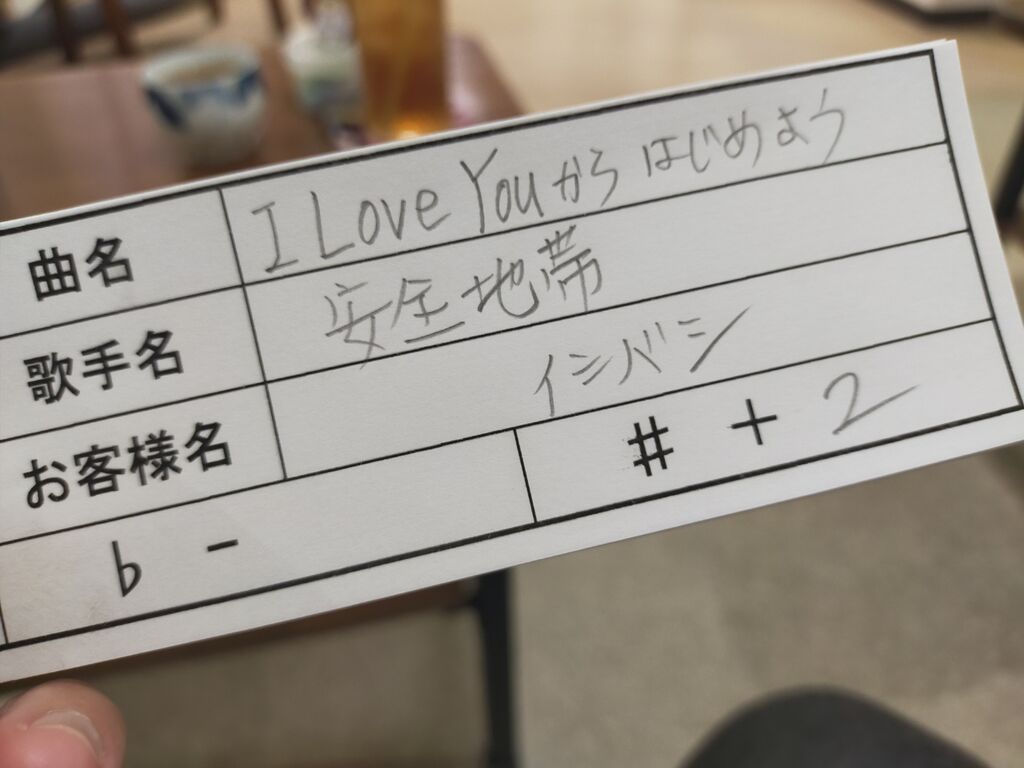 曲名 I Love You からはじめよう
歌手名 安全地帯
お客様名 イシバシ
♭ − # + 2